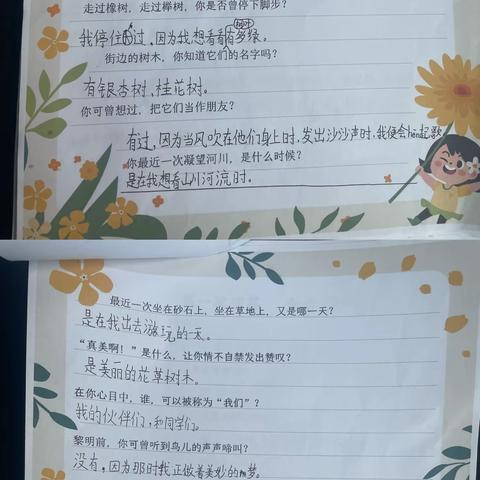 走过橡树，走过榉树，你是否曾停下脚步？
我停住过，因为我想看看树叶有多绿。
街边的树木，你知道它们的名字吗？
有银杏树、桂花树。
你可曾想过，把它们当作朋友？
有过，因为当风吹在他们身上时，发出沙沙声时，我便会hēng起歌
你最近一次凝望河川，是什么时候？
是在我想看山川河流时。
最近一次坐在砂石上，坐在草地上，又是哪一天？
是在我出去游玩的一天。
“真美啊！”是什么，让你情不自禁发出赞叹？
是美丽的花草树木。
在你心目中，谁，可以被称为“我们”？
我的伙伴们，和同学们。
黎明前，你可曾听到鸟儿的声声啼叫？
没有，因为那时我正做着美妙的梦。